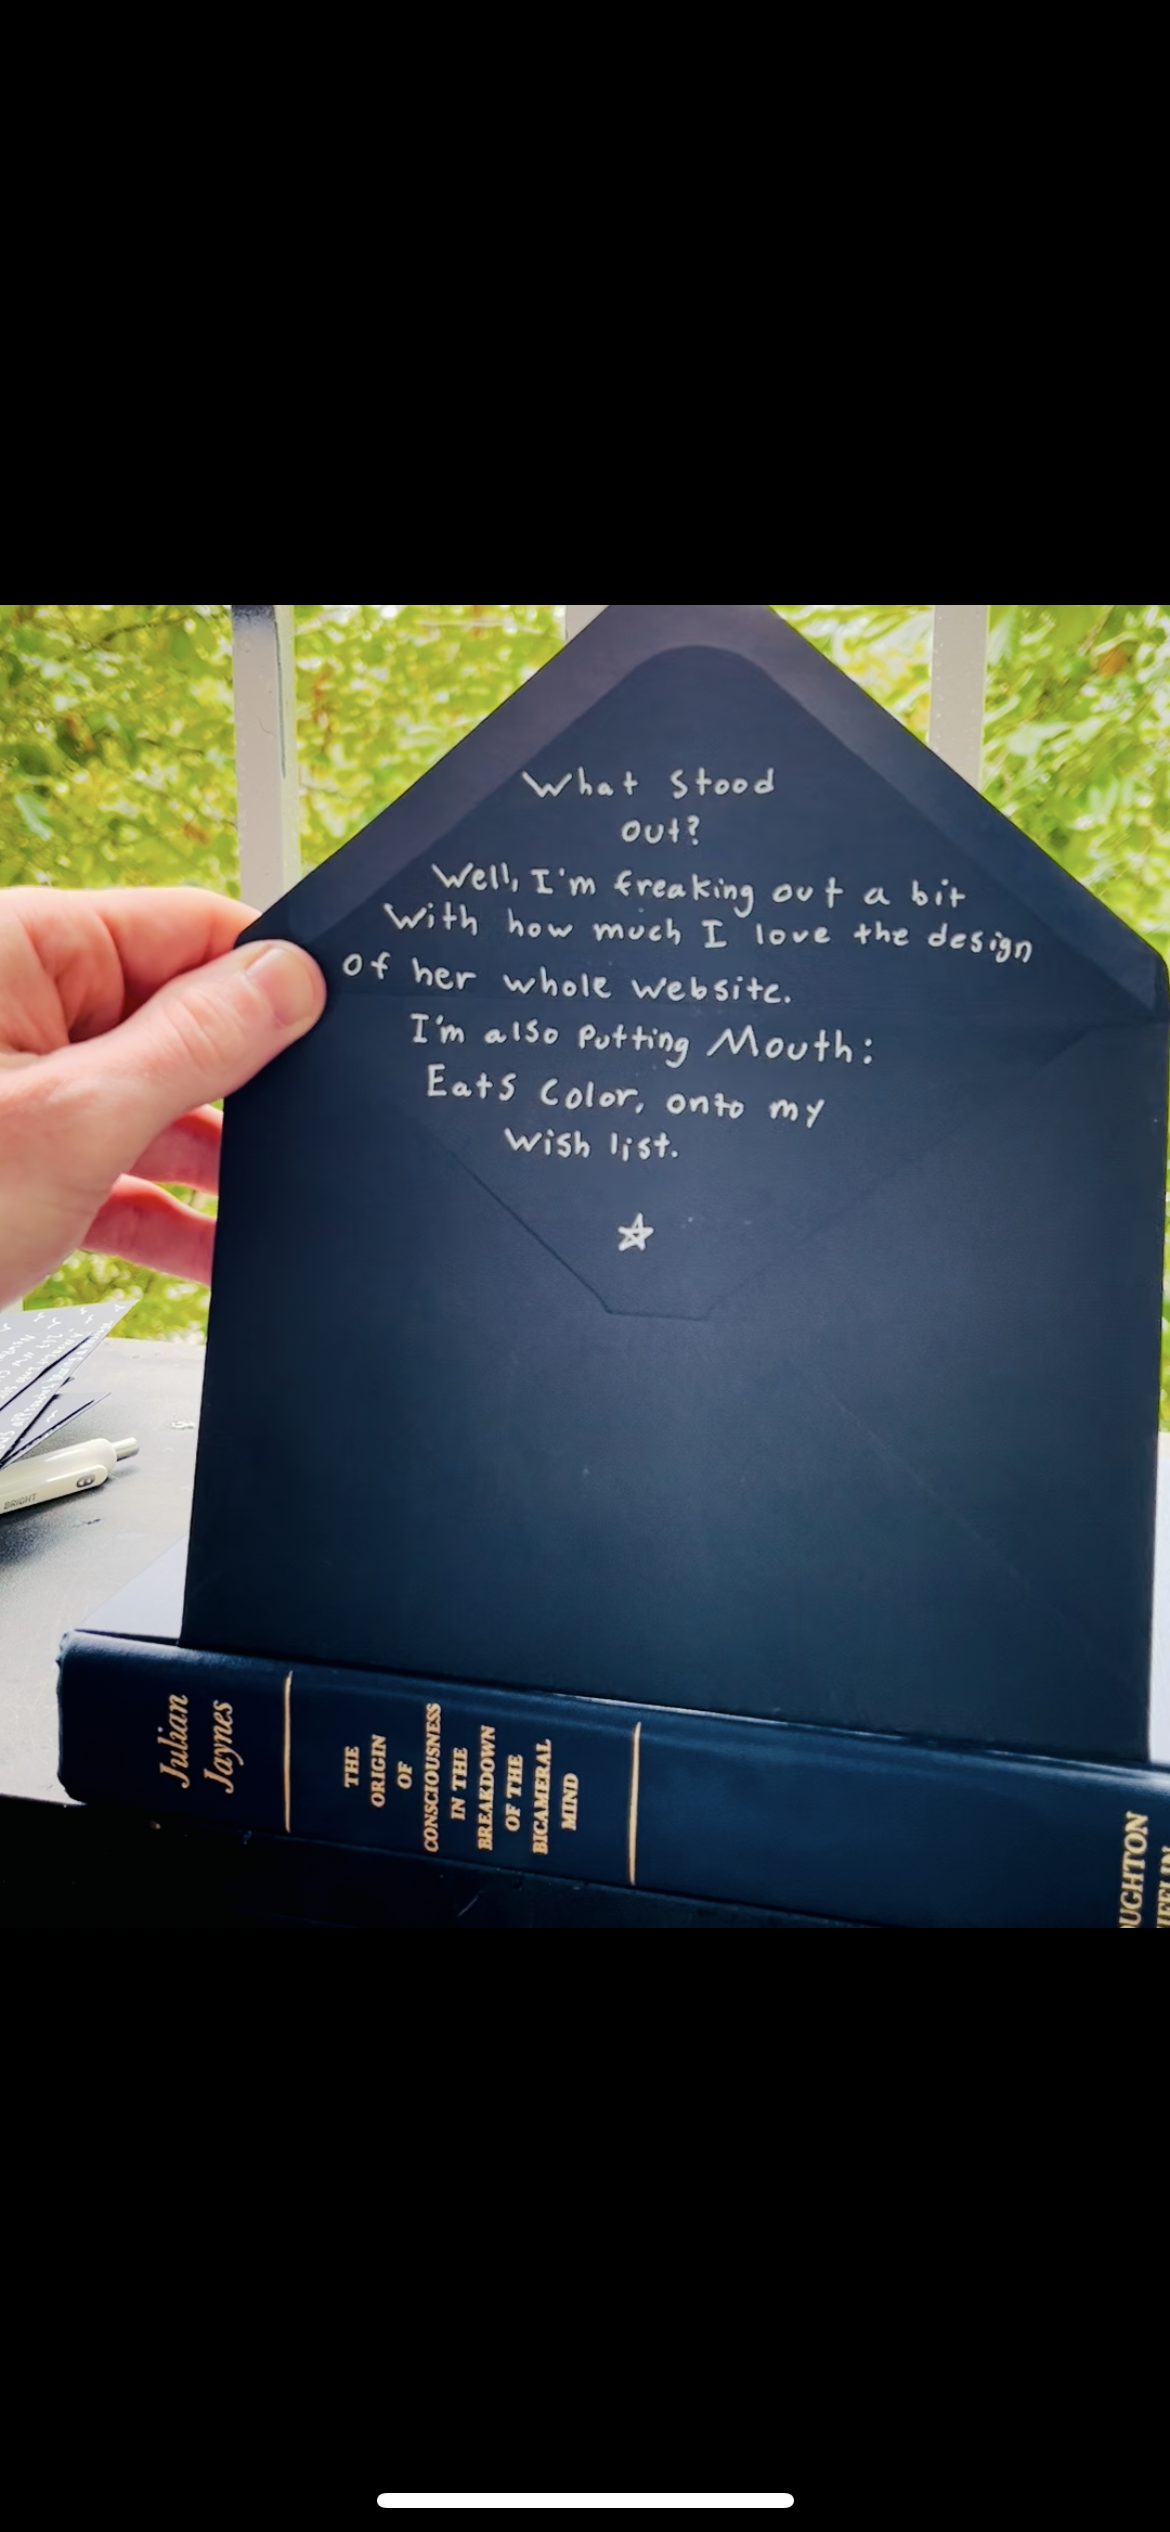 What Stood
out?
Well, I'm freaking out a bit
With how much I love the design
of her whole website.
I'm also putting Mouth:
Eats Color, onto my
Wish list.
BRIGHT
Julian
Jaynes
THE
ORIGIN
OF
CONSCIOUSNESS
IN THE
BREAKDOWN
OF THE
BICAMERAL
MIND